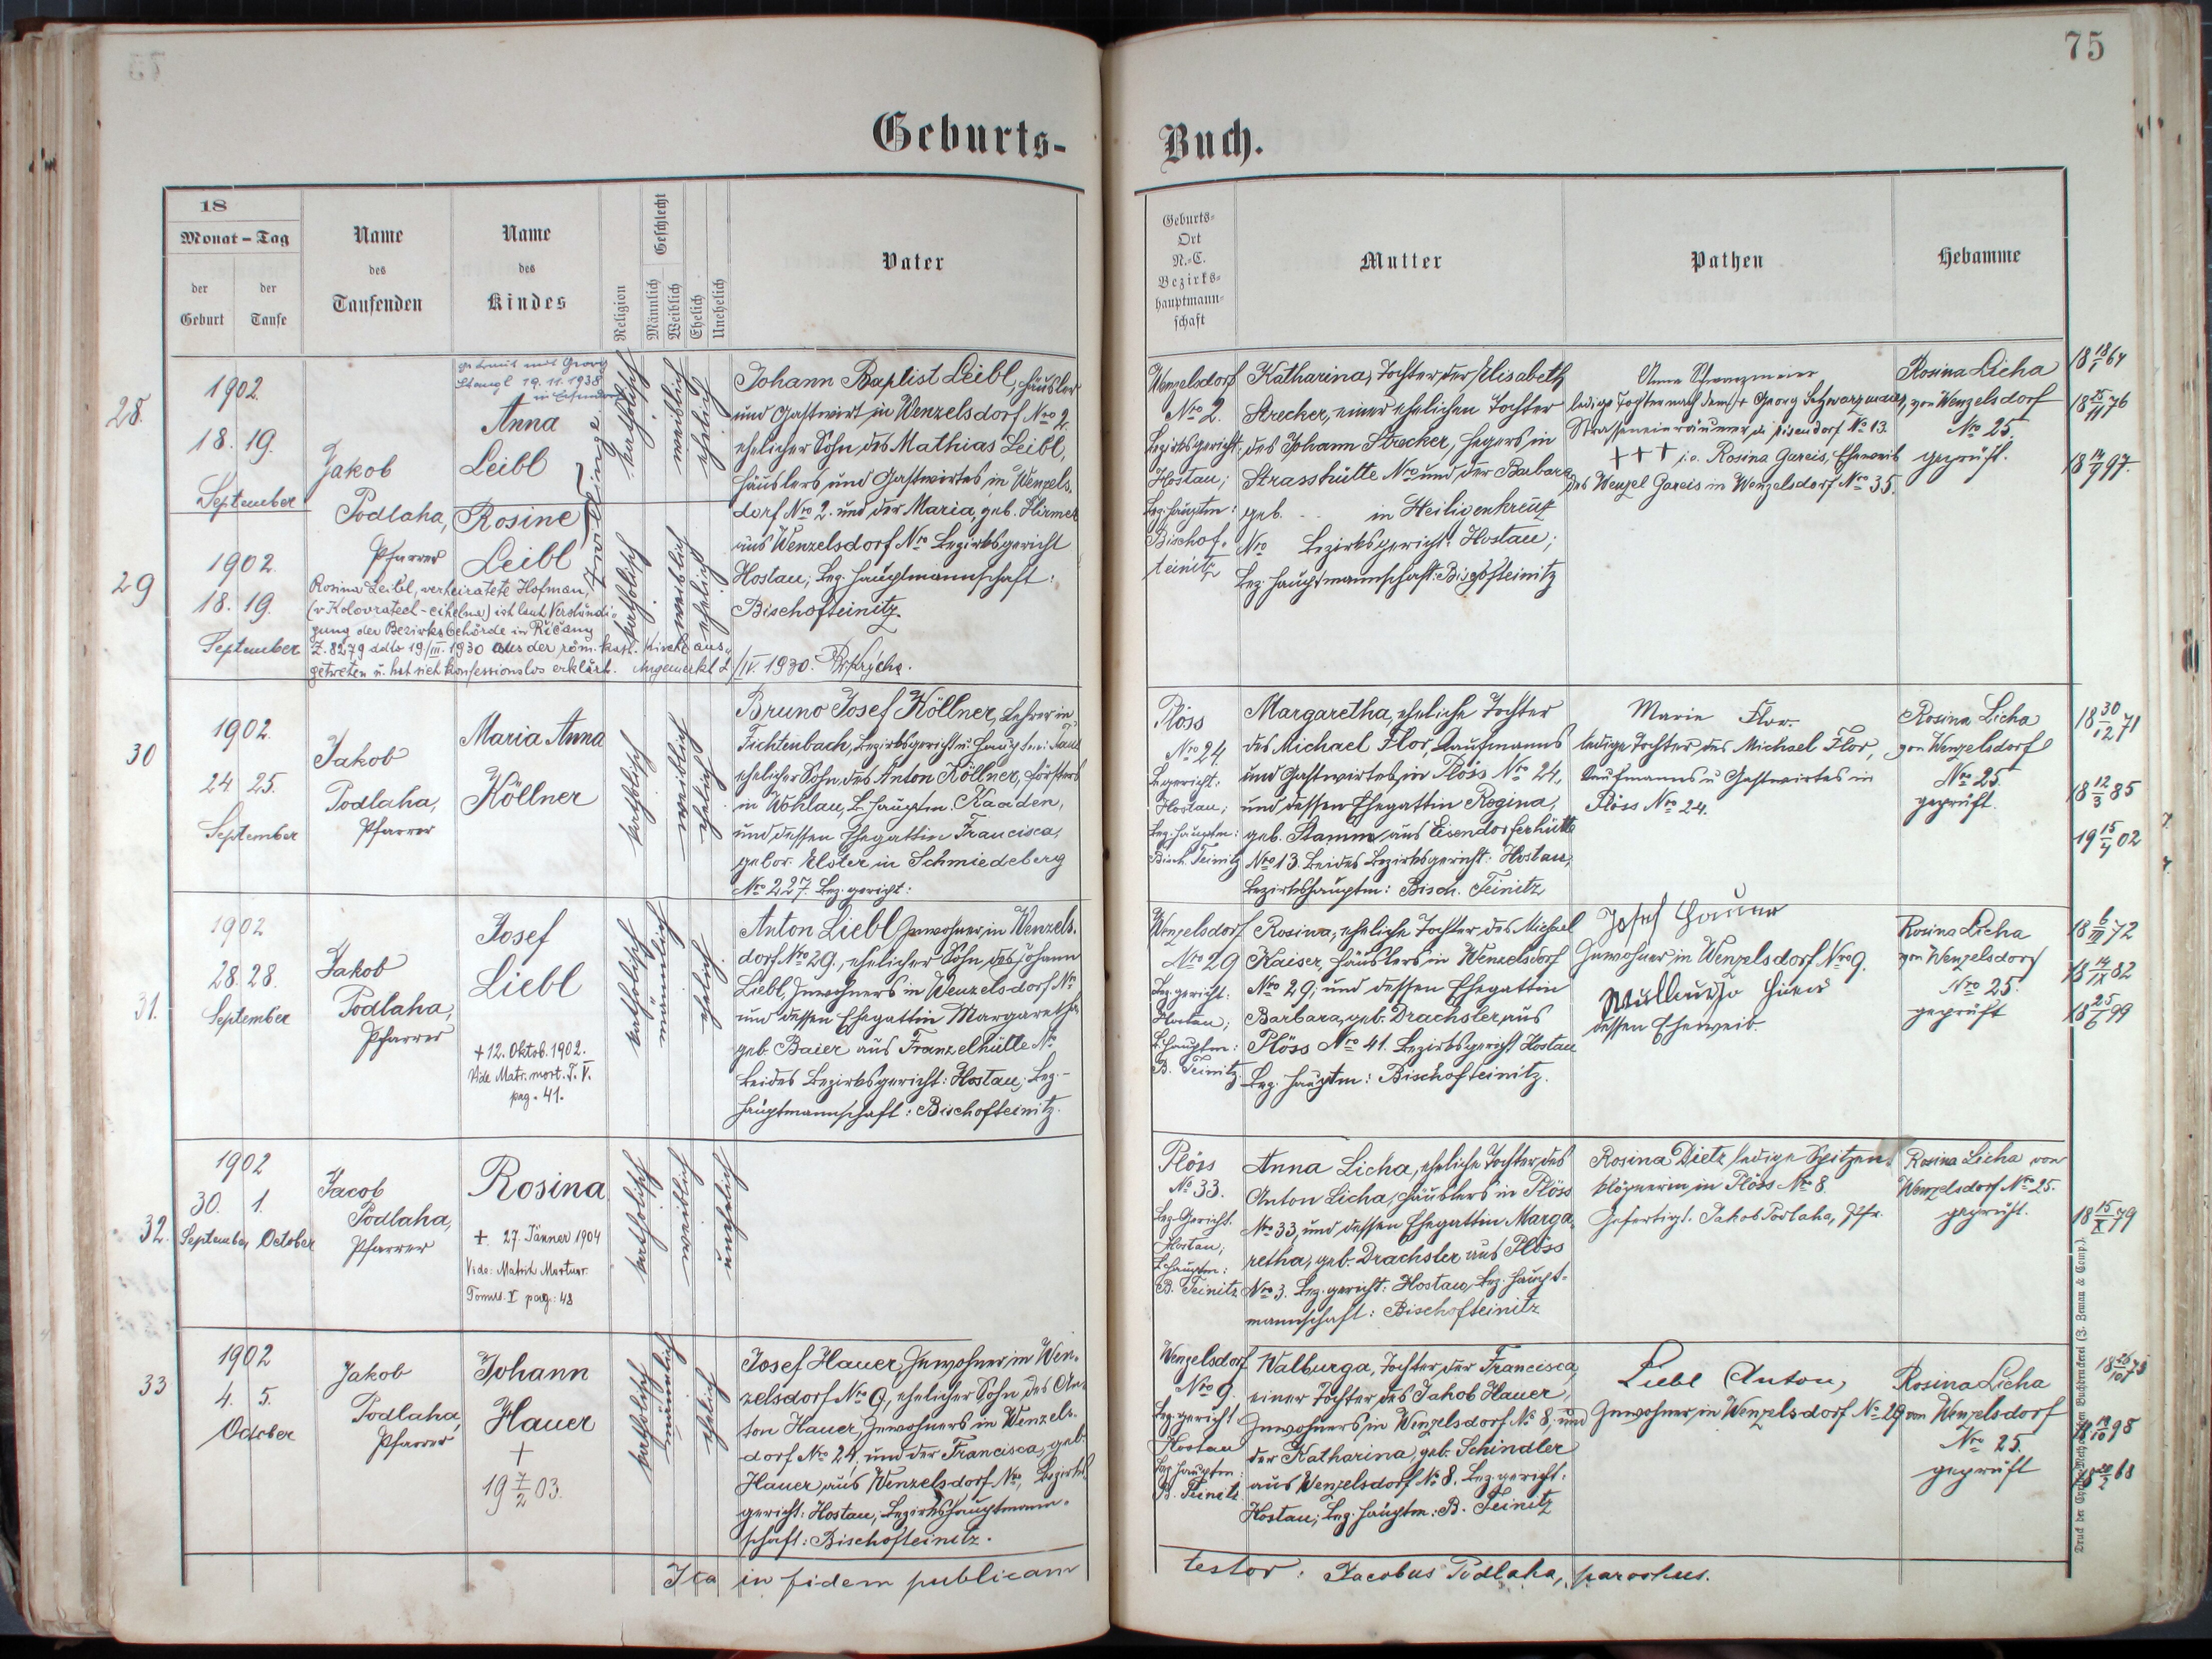 75
Geburts-
Buch.
18
Monat – Tag
der Geburt
der Taufe
Name
des
Taufenden
Name
des
Kindes
Religion
Geschlecht
Männlich
Weiblich
Ehelich
Unehelich
Vater
Geburts-
Ort
N.-C.
Bezirks-
hauptmann-
schaft
Mutter
Pathen
Hebamme
28.
1902.
18. 19.
September
Jakob
Podlaha,
Pfarrer
getraut mit Georg
Stangl 19.11.1938
in
Anna
Leibl
Zwillinge
katholisch
weiblich
ehelich
Johann Baptist Leibl, Häusler
und Gastwirt in Wenzelsdorf Nro 2.
ehelicher Sohn des Mathias Leibl,
Häuslers und Gastwirtes in Wenzels-
dorf Nro 2. und der Maria, geb.
aus Wenzelsdorf Nro Bezirksgericht
Hostau; Bez. Hauptmannschaft:
Bischofteinitz.
Wenzelsdorf
Nro 2.
Bezirksgericht:
Hostau;
Bez. Hauptm:
Bischof-
teinitz
Katharina, Tochter der Elisabeth
Strecker, einer ehelichen Tochter
des Johann Strecker, Hegers in
Strasshütte Nro und der Barbara
geb. in Heiligenkreuz
Nro Bezirksgericht: Hostau;
Bez. Hauptmannschaft: Bischofteinitz
Anna Schwarzmeier
ledige Tochter nach dem + Georg Schwarzmaier,
Strasseneinräumer in Eisendorf No 13.
+++ i.o. Rosina Gareis, Eheweib
des Wenzel Gareis in Wenzelsdorf Nro 35.
Rosina Licha
von Wenzelsdorf
No 25.
geprüft.
29
1902.
18. 19.
September
Rosine
Leibl
katholisch
weiblich
ehelich
Rosina Leibl, verheiratete Hofman,
ist laut Verständi-
gung der Bezirksbehörde in Říčany
Z. 8279 ddto 19/III. 1930 aus der röm. kath. Kirche aus-
getreten u. hat sich konfessionslos erklärt. Angemerkt 2/IV. 1930.
30
1902.
24 25.
September
Jakob
Podlaha,
Pfarrer
Maria Anna
Köllner
katholisch
weiblich
ehelich
Bruno Josef Köllner, Lehrer in
Fichtenbach, Bezirksgericht u. Hauptm: Taus
ehelicher Sohn des Anton Köllner, Försters
in Wohlau, B. Hauptm. Kaaden,
und dessen Ehegattin Francisca,
gebor. Elster in Schmiedeberg
Nro 227. Bez. gericht:
Plöss
No 24.
B. gericht:
Hostau;
Bez. Hauptm:
Bisch. Teinitz
Margaretha, eheliche Tochter
des Michael Flor, Kaufmanns
und Gastwirtes in Plöss No 24,
und dessen Ehegattin Regina,
geb. Stamm aus Eisendorferhütte
Nro 13. Beides Bezirksgericht: Hostau,
Bezirkshauptm: Bisch. Teinitz
Marie Flor
ledige Tochter des Michael Flor,
Kaufmanns u. Gastwirtes in
Plöss No 24.
Rosina Licha
von Wenzelsdorf
Nro 25
geprüft.
31.
1902
28. 28.
September
Jakob
Podlaha,
Pfarrer
Josef
Liebl
+ 12. Oktob. 1902.
Vide Matr. mort. T. V.
pag. 41.
katholisch
männlich
ehelich
Anton Liebl Inwohner in Wenzels-
dorf Nro 29., ehelicher Sohn des Johann
Liebl, Inwohners in Wenzelsdorf No
und dessen Ehegattin Margaretha
geb. Baier aus Franzelhütte No
Beides Bezirksgericht: Hostau, Bez.-
Hauptmannschaft: Bischofteinitz.
Wenzelsdorf
Nro 29
Bez. gericht:
Hostau;
B. Hauptm:
B. Teinitz.
Rosina, eheliche Tochter des Michael
Kaiser, Häuslers in Wenzelsdorf
Nro 29, und dessen Ehegattin
Barbara, geb. Drachsler aus
Plöss Nro 41. Bezirksgericht Hostau
Bez. Hauptm: Bischofteinitz.
Josef Hauer
Inwohner in Wenzelsdorf Nro 9.
dessen Eheweib.
Rosina Licha
von Wenzelsdorf
Nro 25.
geprüft
32.
1902
30. 1.
September October
Jacob
Podlaha,
Pfarrer
Rosina
+ 27. Jänner 1904
Vide: Matrik Mortuor.
Tomus. V pag: 48
katholisch
weiblich
unehelich
Plöss
No 33.
Bez. Gericht
Hostau;
B. Hauptm:
B. Teinitz
Anna Licha, eheliche Tochter des
Anton Licha, Häuslers in Plöss
Nro 33, und dessen Ehegattin Marga-
retha, geb. Drachsler aus Plöss
Nro 3. Bez. gericht: Hostau, Bez. Haupt-
mannschaft: Bischofteinitz
Rosina Dietz ledige Spitzen-
klöpnerin in Plöss No 8.
Gefertigt. Jakob Podlaha, Pfr.
Rosina Licha von
Wenzelsdorf No 25.
geprüft.
33
1902
4. 5.
October
Jakob
Podlaha,
Pfarrer
Johann
Hauer
+
19 7/2 03.
katholisch
männlich
ehelich
Josef Hauer, Inwohner in Wen-
zelsdorf Nro 9, ehelicher Sohn des An-
ton Hauer, Inwohners in Wenzels-
dorf No 24, und der Francisca, geb.
Hauer aus Wenzelsdorf No, Bezirks
gericht: Hostau; Bezirkshauptmann-
schaft: Bischofteinitz.
Wenzelsdorf
Nro 9.
Bez. gericht
Hostau
Bez. Hauptm:
B. Teinitz
Walburga, Tochter der Francisca,
einer Tochter des Jakob Hauer,
Inwohners in Wenzelsdorf No 8. und
der Katharina, geb. Schindler
aus Wenzelsdorf No 8. Bez. gericht:
Hostau; Bez. Hauptm: B. Teinitz
Liebl Anton,
Inwohner in Wenzelsdorf No 29
Rosina Licha
von Wenzelsdorf
Nro 25.
geprüft
Ita in fidem publicam
testor: Jacobus Podlaha, parochus.
18 30/12 71
18 12/3 85
19 15/4 02
18 15/X 79